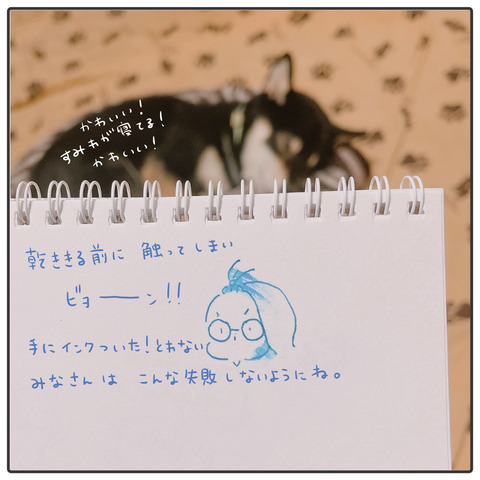 かわいい！
すみれが寝てる！
かわいい！
乾ききる前に 触ってしまい
ビョーン!!
手にインクついた！とれない
みなさんは こんな失敗しないようにね。